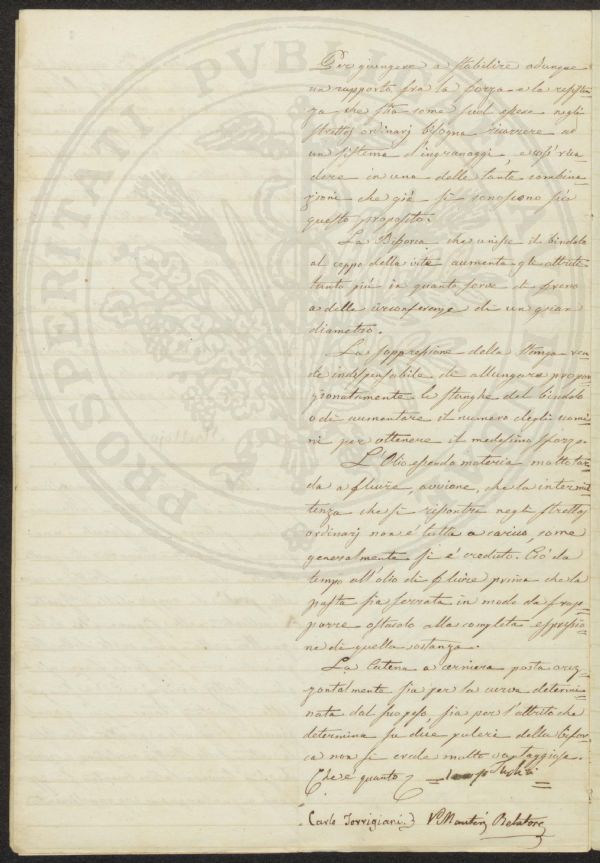 Per giungere a stabilire adunque
un rapporto fra la forza e la resisten=
za che stia come suol essere negli
strettoj ordinarj bisogna ricorrere ad
un sistema d'ingranaggi, e così rica
dere in una delle tante combina=
zione che già si conoscono sù
questo proposito.
La Biforca che unisce il bindolo
al ceppo della vite aumenta gli attriti
tanto più in quanto serve di freno
a delle circonferenze di un gran
diametro.
La soppressione della stanga ren
de indispensabile di allungare propor
zionatamente le stanghe del bindolo
o di aumentare il numero degli uomi=
ni per ottenere il medesimo sforzo.
L'Olio essendo materia molto tar
da a fluire, avviene, che la intermit
tenza che si riscontra negli strettoj
ordinarj non é tutta a carico, come
generalmente si é creduto. Ciò da
tempo all'olio di fluire prima che la
pasta sia serrata in modo da frap=
porre ostacolo alla completa espressio=
ne di quella sostanza.
La Catena a cerniera posta oriz=
zontalmente sia per la curva determi=
nata dal suo peso, sia per l'attrito che
determina su due puleri della bifor=
ca non si crede molto vantaggiosa.
Che é quanto
Carlo Torrigiani. Relatore
PROSPERITATI PVBLICAE